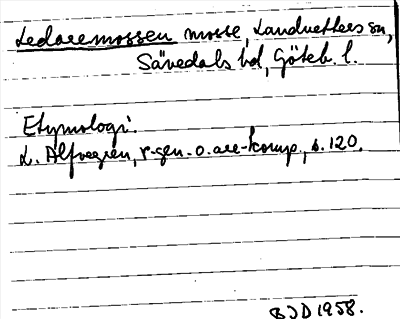 Ledaremossen mosse, Landvetters sn,
Sävedals hd, Göteb. l.
Etymologi.
L. Alfvegren, r-gen. o. are-komp., s. 120.
BJD 1958.